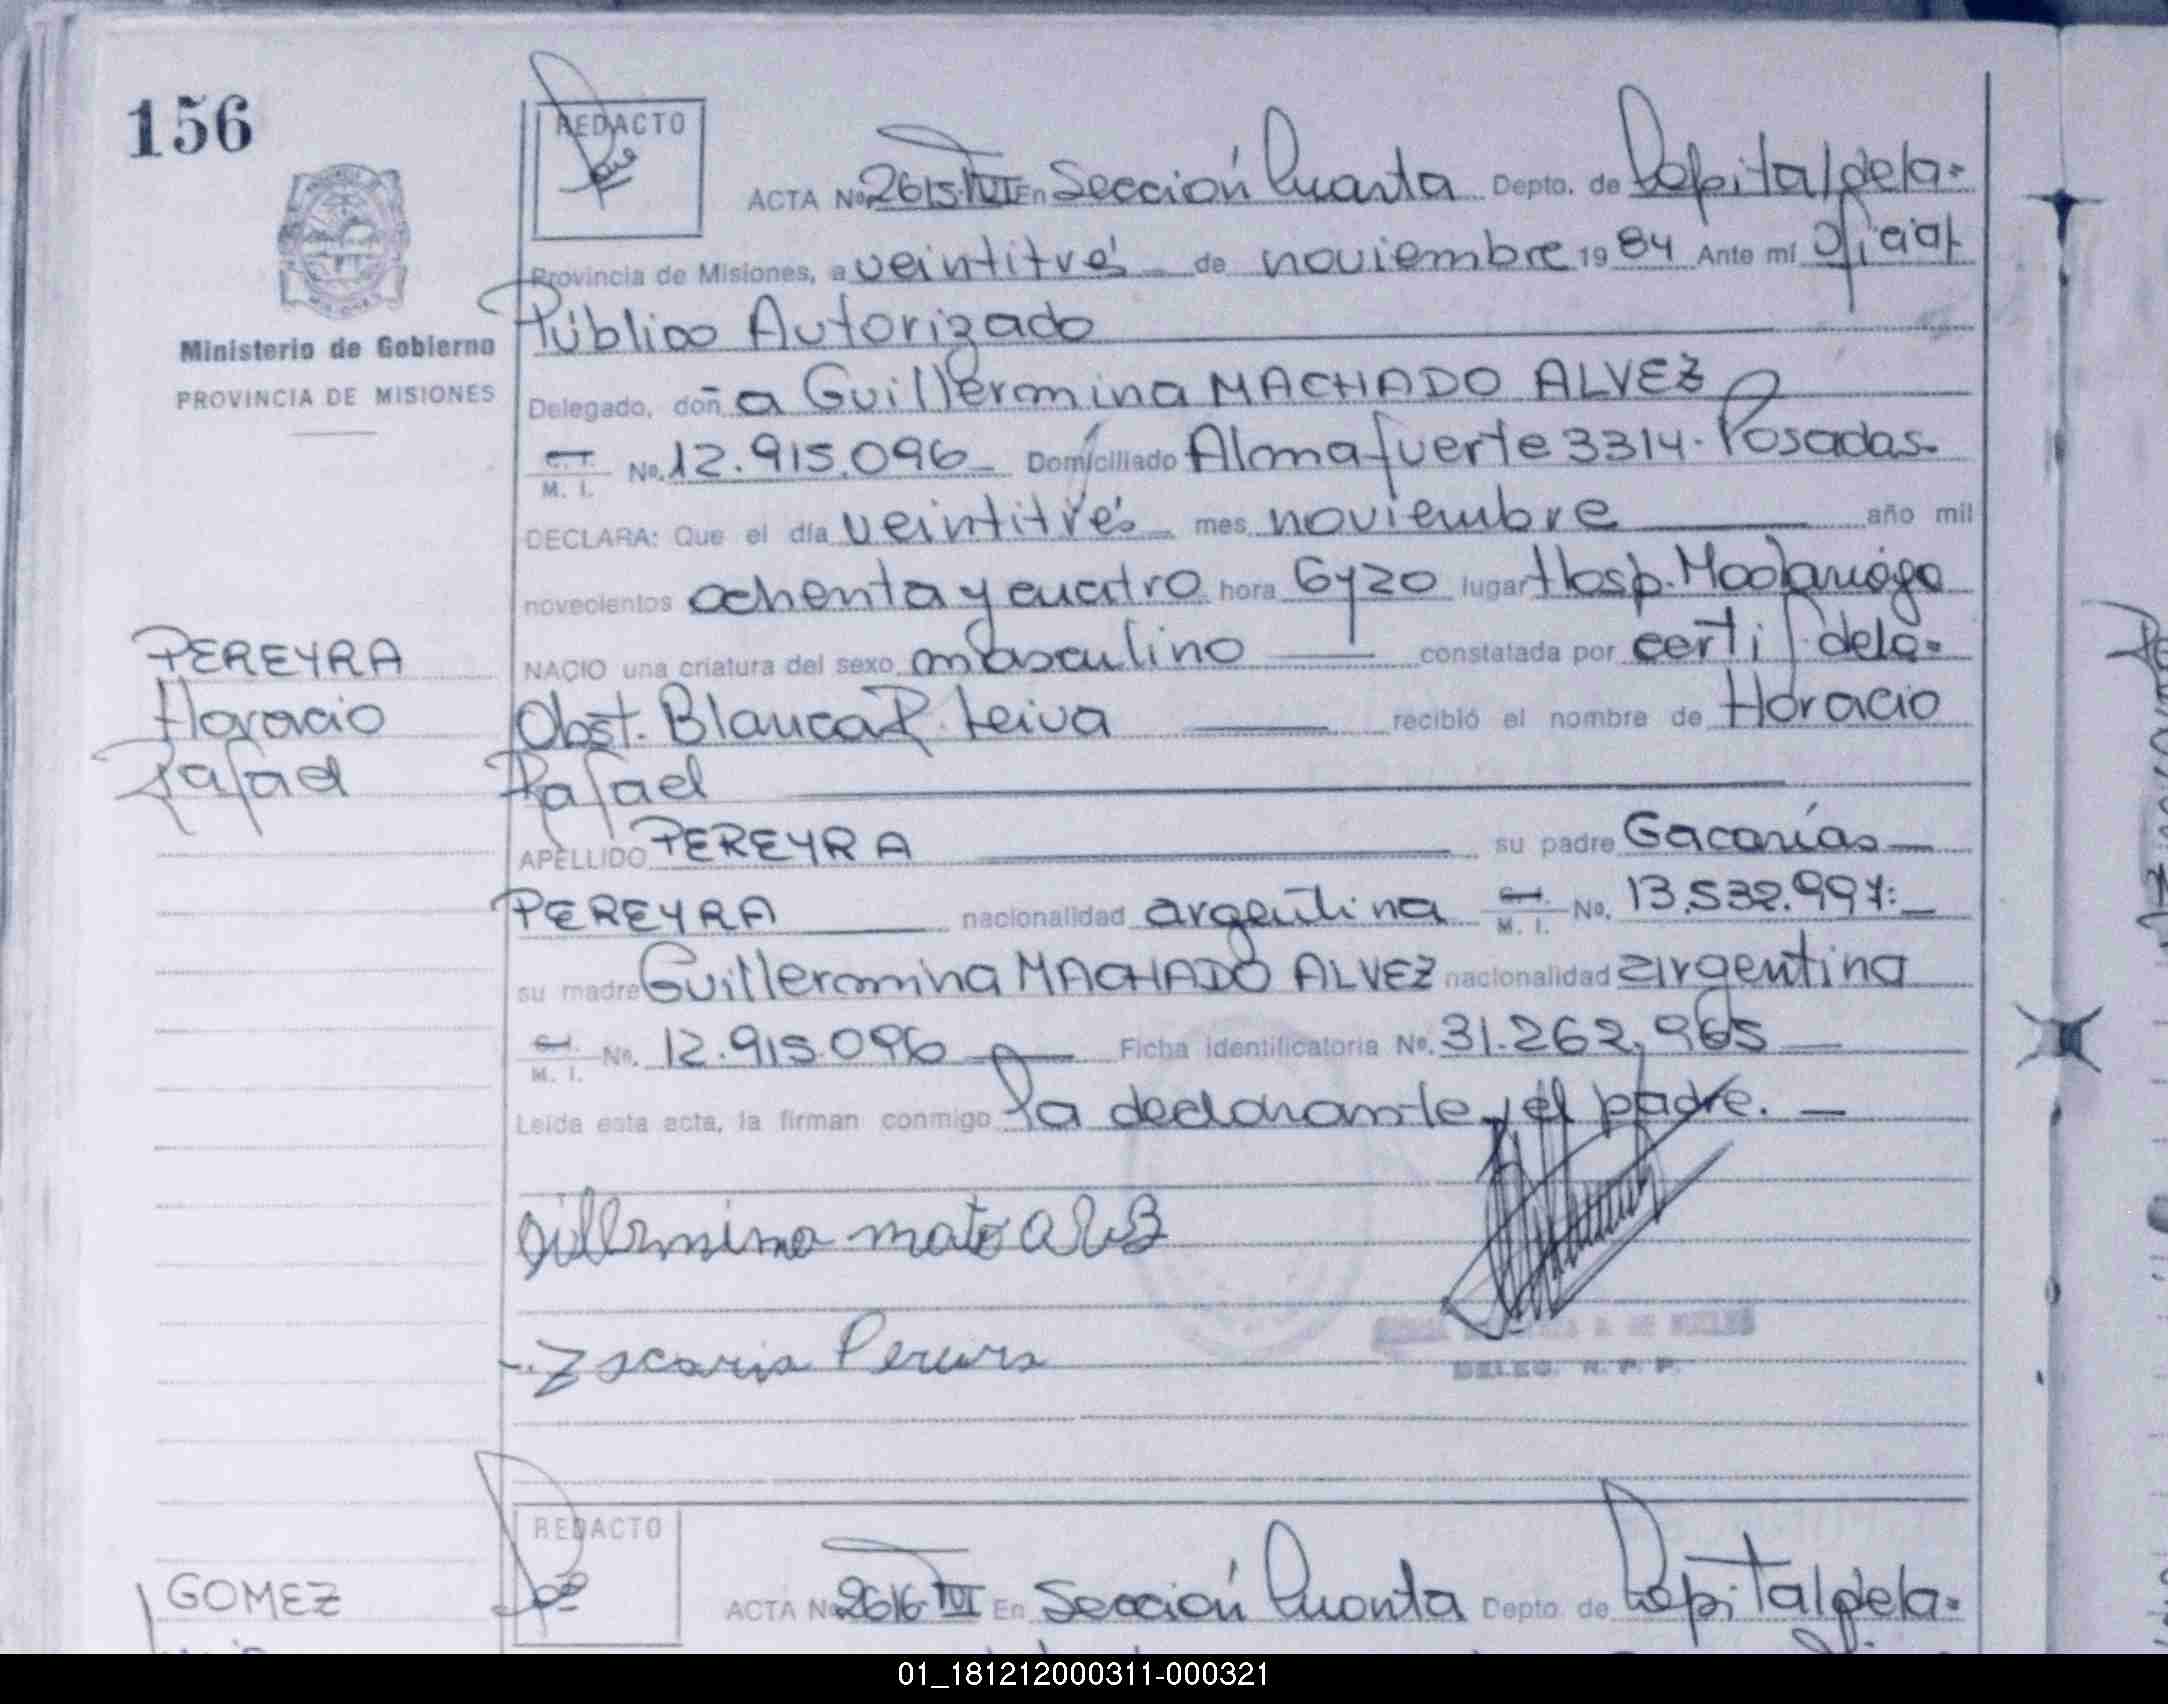 156
REDACTO
ACTA No. 2615. TVI En Sección Cuarta Depto. de Capital de la-
Provincia de Misiones, a veintitrés de noviembre 1984 Ante mí Oficial
Ministerio de Gobierno
PROVINCIA DE MISIONES
Público Autorizado
Delegado, doña Guillermina MACHADO ALVEZ
C. I.
M. I. No. 12.915.096 Domiciliado Almafuerte 3314. Posadas.
DECLARA: Que el día veintitrés mes noviembre año mil
novecientos ochenta y cuatro hora 6y20 lugar Hosp. Madariaga
PEREYRA
Horacio
Rafael
NACIO una criatura del sexo masculino constatada por certif. de la-
Obst. Blanca R. Leiva recibió el nombre de Horacio
Rafael
APELLIDO PEREYRA su padre Gacarías
PEREYRA nacionalidad argentina M. I. No. 13.532.997:
su madre Guillermina MACHADO ALVEZ nacionalidad argentina
M. I. No. 12.915.096 Ficha identificatoria No. 31.262.965
Leída esta acta, la firman conmigo la declarante y el padre.
DELEG. R. P. P.
REDACTO
GOMEZ
ACTA No. 2616 TVI En Sección Cuarta Depto. de Capital de la-
01_181212000311-000321